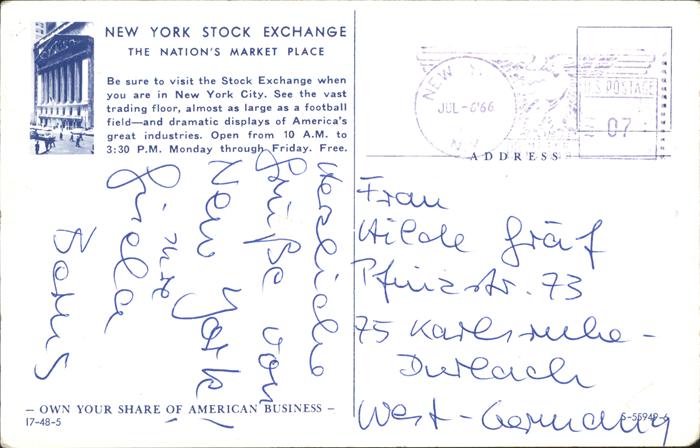 NEW YORK STOCK EXCHANGE
THE NATION'S MARKET PLACE
Be sure to visit the Stock Exchange when
you are in New York City. See the vast
trading floor, almost as large as a football
field—and dramatic displays of America's
great industries. Open from 10 A.M. to
3:30 P.M. Monday through Friday. Free.
Herzliche
Grüße von
New York!
Ihre
Gisela
NEW Y
JUL-6'66
N.Y.
U.S. POSTAGE
07
ADDRESS
Frau
Hilde Gräf
Pfinzstr. 73
75 Karlsruhe-
Durlach
West-Germany
— OWN YOUR SHARE OF AMERICAN BUSINESS —
17-48-5